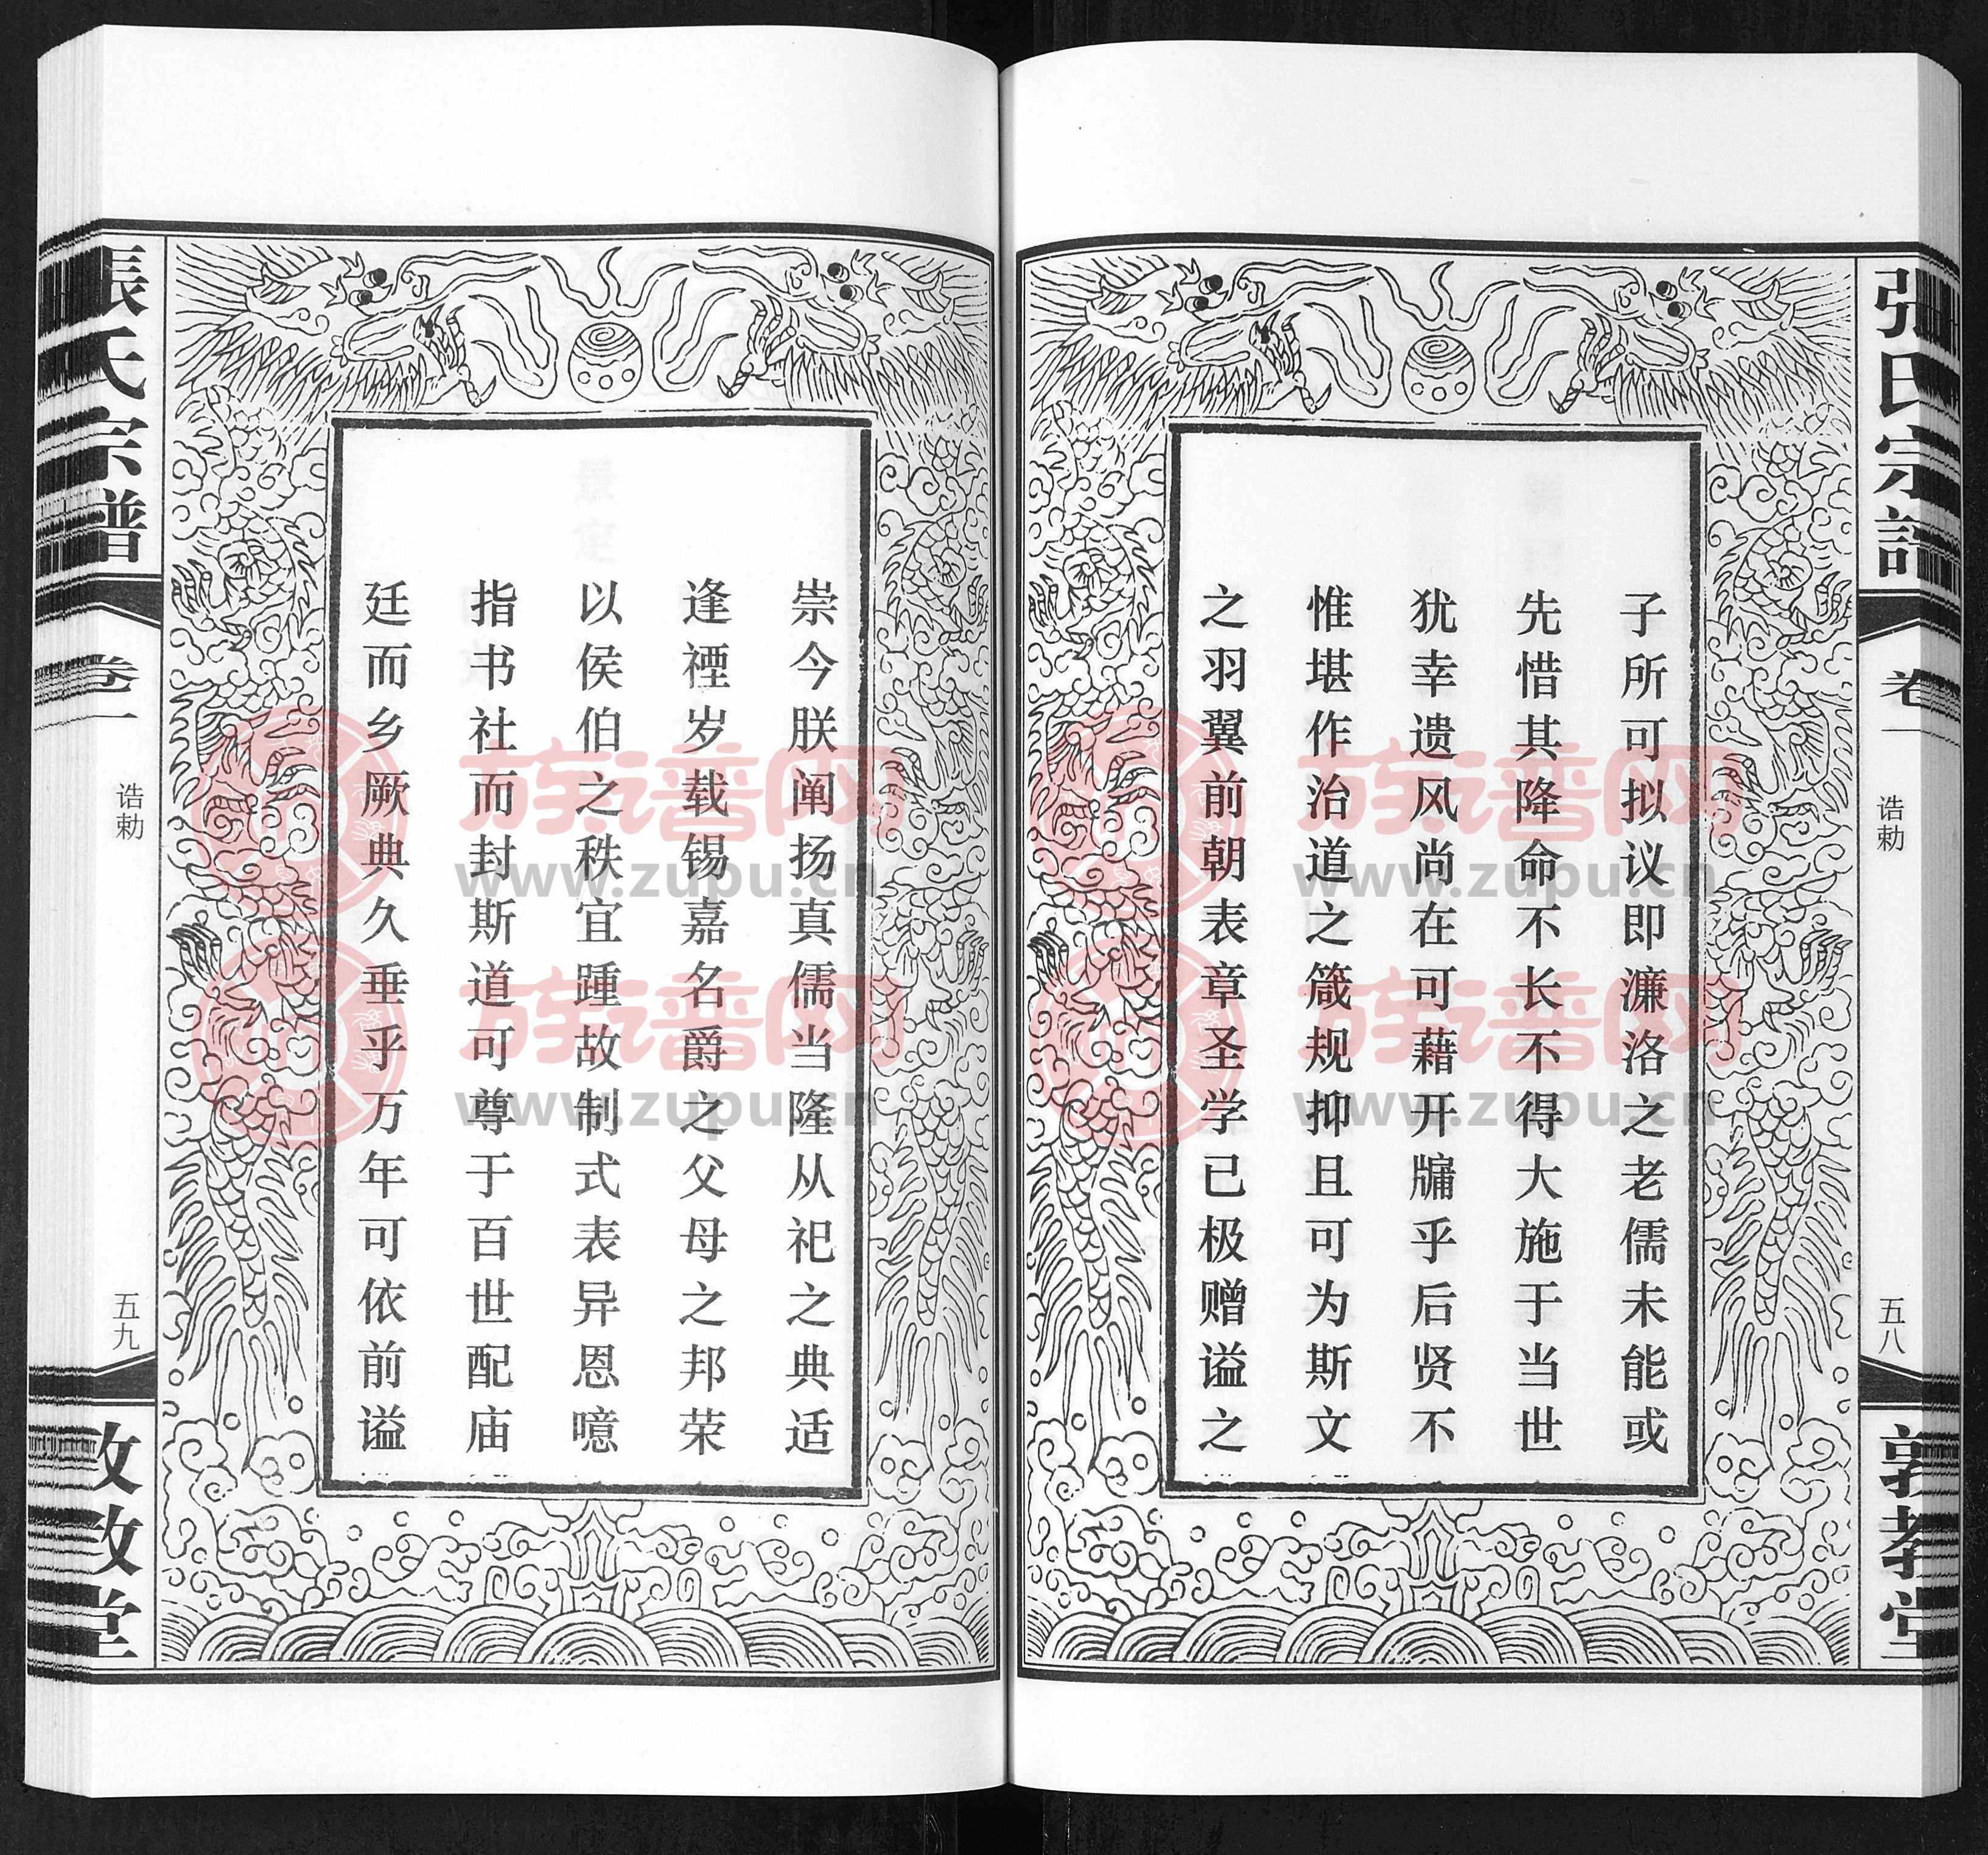 张氏宗谱
卷一
诰勅
五八
敦教堂
子所可拟议即濂洛之老儒未能或
先惜其降命不长不得大施于当世
犹幸遗风尚在可藉开牖乎后贤不
惟堪作治道之箴规抑且可为斯文
之羽翼前朝表章圣学已极赠谥之
崇今朕阐扬真儒当隆从祀之典适
逢禋岁载锡嘉名爵之父母之邦荣
以侯伯之秩宜踵故制式表异恩噫
指书社而封斯道可尊于百世配庙
廷而乡厥典久垂乎万年可依前谥
張氏宗譜
卷一
诰勅
五九
敦教堂
族谱网
www.zupu.cn
族谱网
www.zupu.cn
族谱网
www.zupu.cn
族谱网
www.zupu.cn